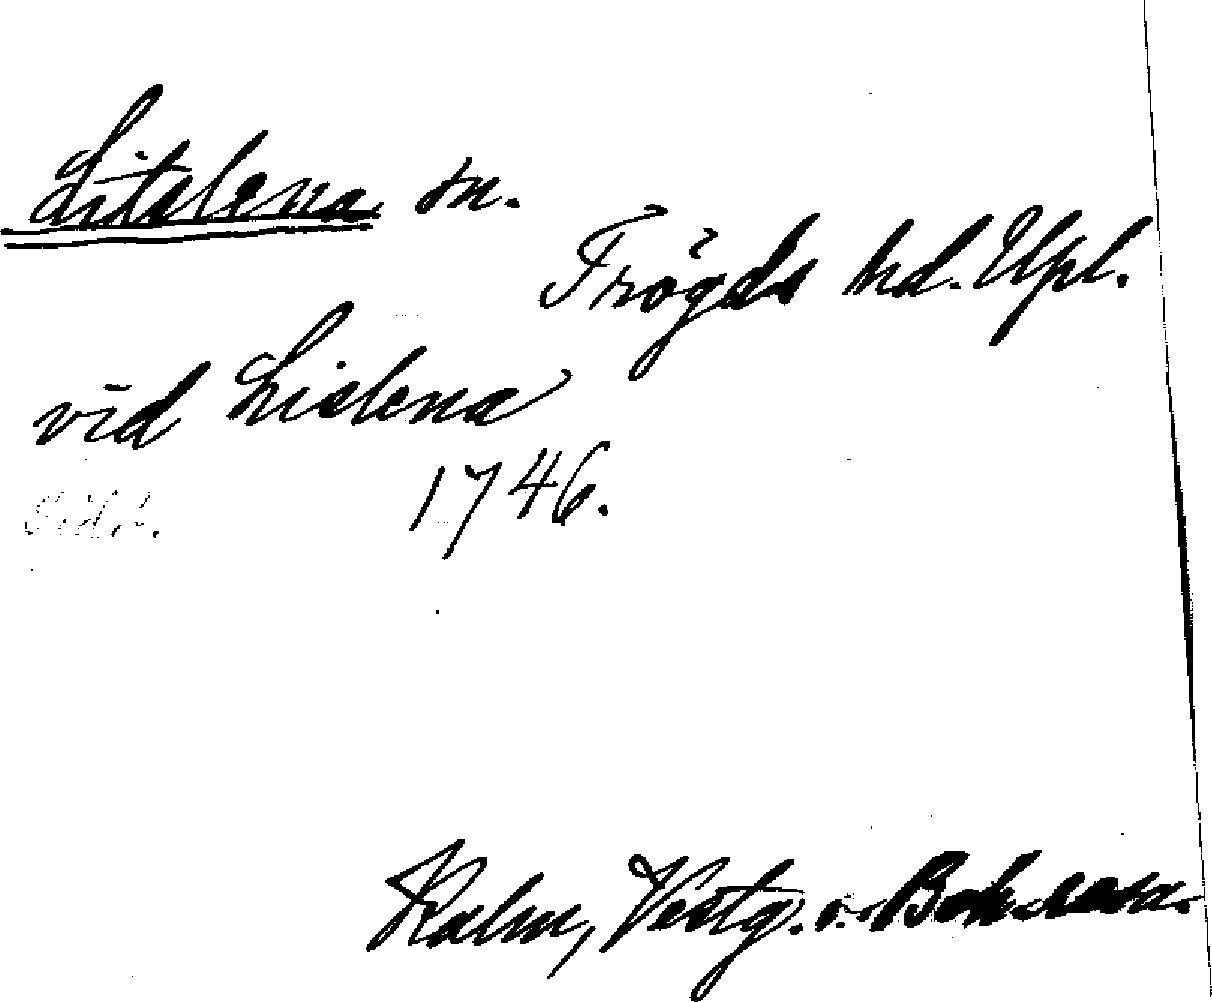 Litslena sn.
Trögds hd. Upl.
vid Lislena
1746.
Kalm, Vestg. o. Boh. resa.